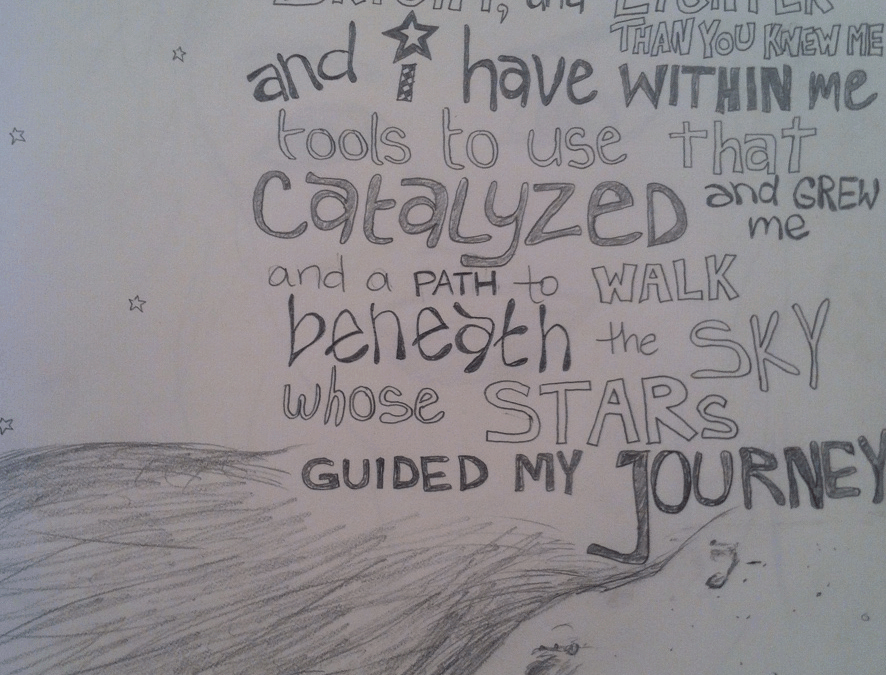 BRIGHT, and LIGHTER
THAN YOU KNEW ME
and i have WITHIN me
tools to use that
CatalyzeD and GREW
me
and a PATH to WALK
beneath the SKY
whose STARs
GUIDED MY JOURNEY